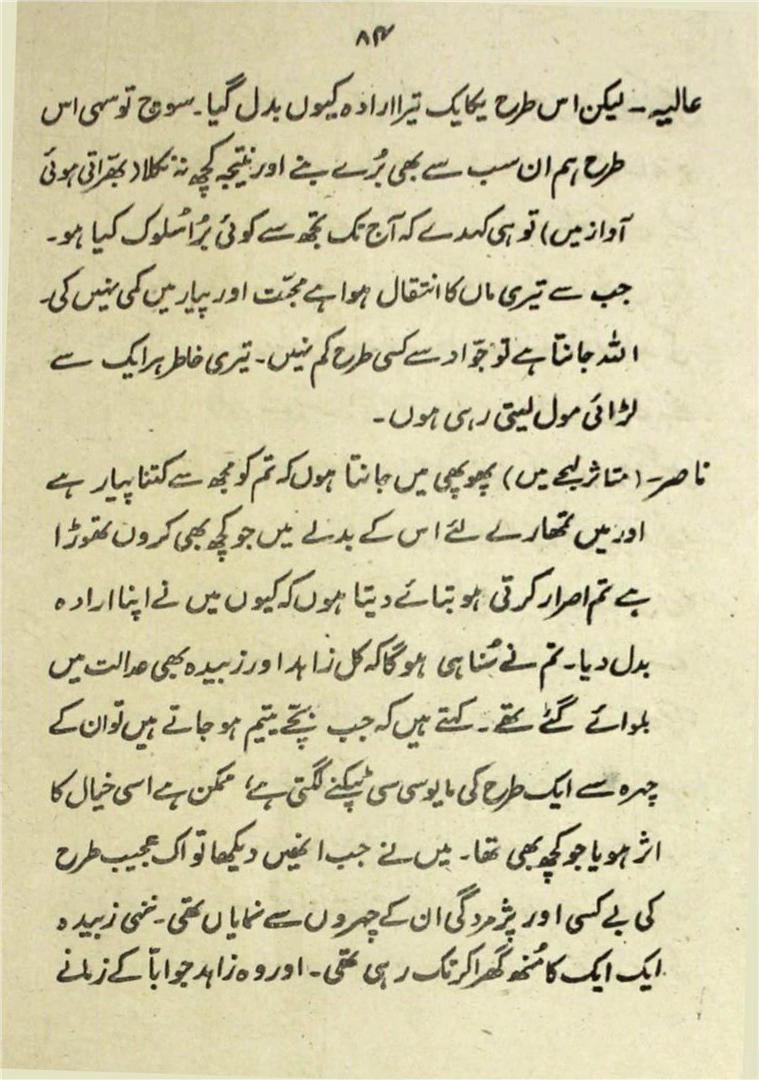 ۸۴
عالیہ ۔ لیکن اس طرح یکایک تیرا ارادہ کیوں بدل گیا۔ سوچ تو سہی اس
طرح ہم ان سب سے بھی بُرے بنے اور نتیجہ کچھ نہ نکلا (بھّراتی ہوئی
آواز میں) تو ہی کہدے کہ آج تک تجھ سے کوئی بُرا سُلوک کیا ہو۔
جب سے تیری ماں کا انتقال ہوا ہے محبّت اور پیار میں کمی نہیں کی۔
اللہ جانتا ہے تو جوّاد سے کسی طرح کم نہیں۔ تیری خاطر ہر ایک سے
لڑائی مول لیتی رہی ہوں۔
ناصر۔ (متاثر لہجے میں) پھوپھی میں جانتا ہوں کہ تم کو مجھ سے کتنا پیار ہے
اور میں تمھارے لئے اس کے بدلے میں جو کچھ بھی کروں تھوڑا
ہے تم اصرار کرتی ہو بتائے دیتا ہوں کہ کیوں میں نے اپنا ارادہ
بدل دیا۔ تم نے سُنا ہی ہوگا کہ کل زاہد اور زبیدہ بھی عدالت میں
بلوائے گئے تھے۔ کہتے ہیں کہ جب بچّے یتیم ہو جاتے ہیں تو ان کے
چہرہ سے ایک طرح کی مایوسی سی ٹپکنے لگتی ہے، ممکن ہے اسی خیال کا
اثر ہو یا جو کچھ بھی تھا۔ میں نے جب انھیں دیکھا تو اک عجیب طرح
کی بے کسی اور پژمردگی ان کے چہروں سے نمایاں تھی۔ ننھی زبیدہ
ایک ایک کا مُنھ گھبرا کر تک رہی تھی۔ اور وہ زاہد جو ابّا کے زمانے